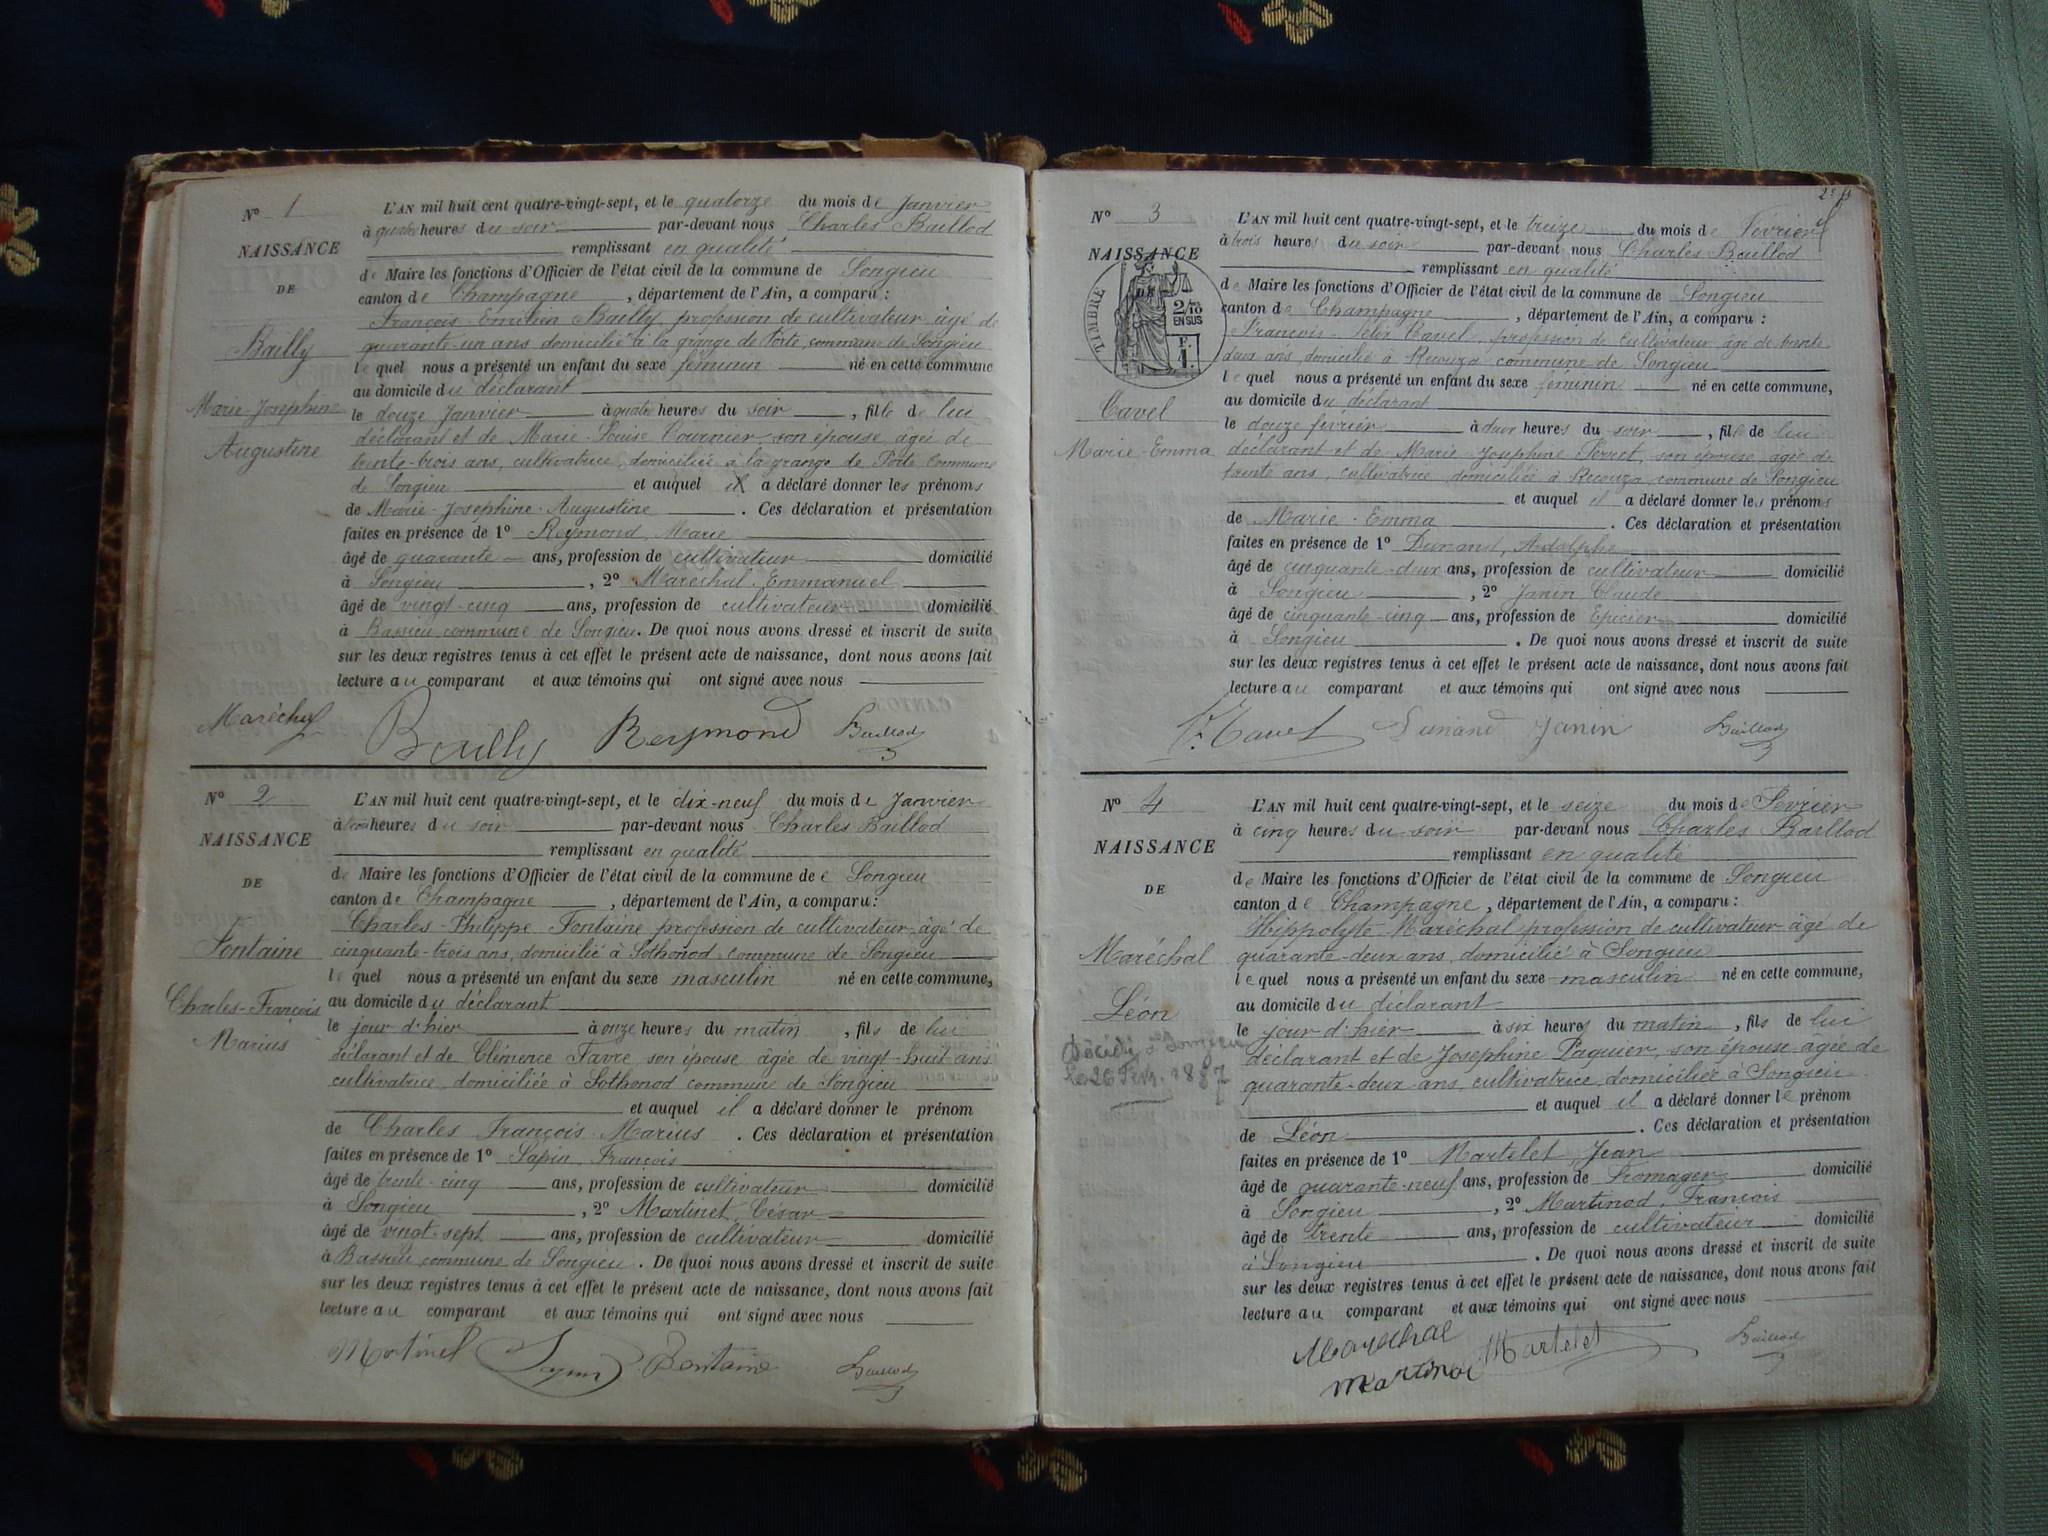 N° 1
NAISSANCE
DE
Bailly
Marie-Josephine
Augustine
L'AN mil huit cent quatre-vingt-sept, et le quatorze du mois de Janvier
à quatre heures du soir par-devant nous Charles Baillod
remplissant en qualité
de Maire les fonctions d'Officier de l'état civil de la commune de Songieu
canton de Champagne, département de l'Ain, a comparu :
François Emilien Bailly, profession de cultivateur âgé de
quarante-un ans domicilié à la grange de Porte, commune de Songieu
lequel nous a présenté un enfant du sexe féminin né en cette commune
au domicile du déclarant
le douze Janvier à quatre heures du soir, fille de lui
déclarant et de Marie Louise Cournier, son épouse, âgée de
trente-trois ans, cultivatrice, domiciliée à la grange de Porte commune
de Songieu et auquel il a déclaré donner les prénoms
de Marie-Josephine-Augustine. Ces déclaration et présentation
faites en présence de 1° Reymond, Marie
âgé de quarante ans, profession de cultivateur domicilié
à Songieu, 2° Maréchal, Emmanuel
âgé de vingt-cinq ans, profession de cultivateur domicilié
à Bassieu commune de Songieu. De quoi nous avons dressé et inscrit de suite
sur les deux registres tenus à cet effet le présent acte de naissance, dont nous avons fait
lecture au comparant et aux témoins qui ont signé avec nous
Maréchal Bailly Reymond Baillod
N° 2
NAISSANCE
DE
Fontaine
Charles-François
Marius
L'AN mil huit cent quatre-vingt-sept, et le dix-neuf du mois de Janvier
à heures du soir par-devant nous Charles Baillod
remplissant en qualité
de Maire les fonctions d'Officier de l'état civil de la commune de e Songieu
canton de Champagne, département de l'Ain, a comparu :
Charles-Philippe Fontaine profession de cultivateur, âgé de
cinquante-trois ans, domicilié à Sothonod commune de Songieu
lequel nous a présenté un enfant du sexe masculin né en cette commune,
au domicile du déclarant
le jour d'hier à onze heures du matin, fils de lui
déclarant et de Clémence Favre son épouse âgée de vingt-huit ans
cultivatrice, domiciliée à Sothonod commune de Songieu
et auquel il a déclaré donner le prénom
de Charles François Marius. Ces déclaration et présentation
faites en présence de 1° Sapin, François
âgé de trente-cinq ans, profession de cultivateur domicilié
à Songieu, 2° Martinet, César
âgé de vingt-sept ans, profession de cultivateur domicilié
à Bassieu commune de Songieu. De quoi nous avons dressé et inscrit de suite
sur les deux registres tenus à cet effet le présent acte de naissance, dont nous avons fait
lecture au comparant et aux témoins qui ont signé avec nous
Martinet Fontaine Baillod
N° 3
NAISSANCE
DE
TIMBRE
2/10
EN SUS
F.
1.
Cavel
Marie-Emma
L'AN mil huit cent quatre-vingt-sept, et le treize du mois de Février
à trois heures du soir par-devant nous Charles Baillod
remplissant en qualité
de Maire les fonctions d'Officier de l'état civil de la commune de Songieu
canton de Champagne, département de l'Ain, a comparu :
François-Félix Cavel, profession de cultivateur âgé de trente-
deux ans, domicilié à Recouza commune de Songieu
lequel nous a présenté un enfant du sexe féminin né en cette commune,
au domicile du déclarant
le douze fevrier à deux heures du soir, fille de lui
déclarant et de Marie Josephine Perret, son épouse, âgée de
trente ans, cultivatrice domiciliée à Recouza commune de Songieu
et auquel il a déclaré donner les prénoms
de Marie-Emma. Ces déclaration et présentation
faites en présence de 1° Dunand, Adolphe
âgé de cinquante-deux ans, profession de cultivateur domicilié
à Songieu, 2° Janin Claude
âgé de cinquante-cinq ans, profession de Epicier domicilié
à Songieu. De quoi nous avons dressé et inscrit de suite
sur les deux registres tenus à cet effet le présent acte de naissance, dont nous avons fait
lecture au comparant et aux témoins qui ont signé avec nous
F. Cavel Dunand Janin Baillod
N° 4
NAISSANCE
DE
Maréchal
Léon
Décédé à Songieu
le 26 Fev. 1887
L'AN mil huit cent quatre-vingt-sept, et le seize du mois de Fevrier
à cinq heures du soir par-devant nous Charles Baillod
remplissant en qualité
de Maire les fonctions d'Officier de l'état civil de la commune de Songieu
canton de Champagne, département de l'Ain, a comparu :
Hippolyte Maréchal profession de cultivateur âgé de
quarante-deux ans, domicilié à Songieu
lequel nous a présenté un enfant du sexe masculin né en cette commune,
au domicile du déclarant
le jour d'hier à six heures du matin, fils de lui
déclarant et de Josephine Paquier, son épouse âgée de
quarante-deux ans, cultivatrice, domiciliée à Songieu
et auquel il a déclaré donner le prénom
de Léon. Ces déclaration et présentation
faites en présence de 1° Martelet, Jean
âgé de quarante-neuf ans, profession de Fromager domicilié
à Songieu, 2° Martinod, François
âgé de trente ans, profession de cultivateur domicilié
à Songieu. De quoi nous avons dressé et inscrit de suite
sur les deux registres tenus à cet effet le présent acte de naissance, dont nous avons fait
lecture au comparant et aux témoins qui ont signé avec nous
Marechal Martelet Baillod
Martinod